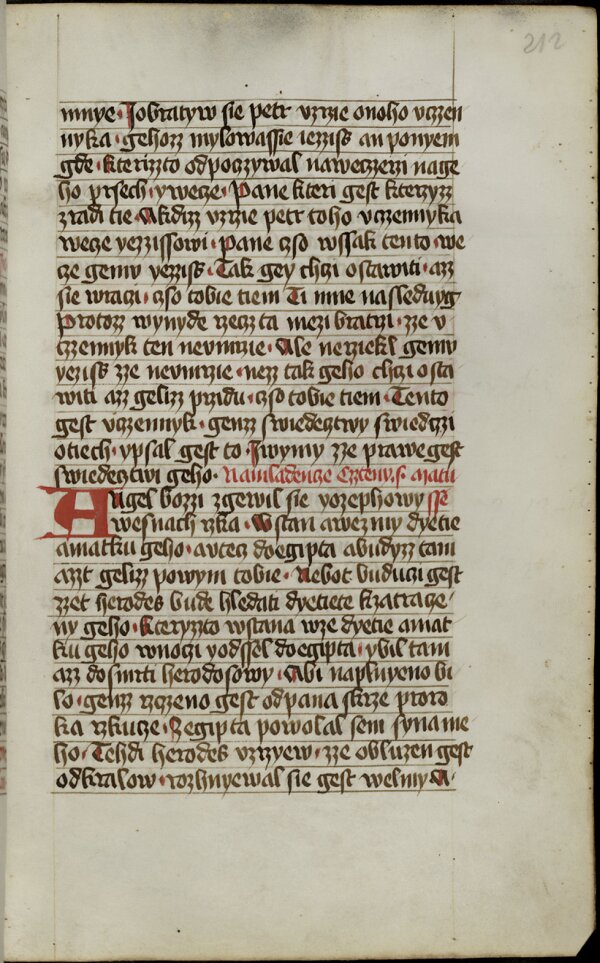 212
mnye · Jobratyw sie petr vzrzie onoho vczen
nyka · gehozz mylowassie iezziss an ponyem
gde · kterizzto odpoczywal naweczerzi nage
ho prsech · ywece · Pane kteri gest kteryzz
zradi tie · Akdizz vzrzie petr toho vczennyka
wece yezzissowi · Pane czso wssak tento · we
ce gemu yezziss · Tak gey chczi ostawiti · azz
sie wraczi · czso tobie tiem Ti mne nasleduyg
Protozz wynyde rzecz ta mezi bratrzi · zze v
czzennyk ten nevmrzie · Ale nerziekl gemu
yeziss zze nevmrzie · nezz tak geho chczi osta
witi azz gelizz przidu · czso tobie tiem · Tento
gest vczennyk · genzz swiedecztwy swiedczi
otiech · ypsal gest to · Jwymy zze prawe gest
swiedecztwi geho · Namladencze Cztenye s. Matu
Angel bozzi zgewil sie yozephowy sse
wesnach rzka · Wstan awezmy dyetie
amatku geho · autecz doegipta abudyzz tam
azzt gelizz powym tobie · Nebot buduczi gest
zzet herodes bude hledati dyetiete kzatrace
ny geho · Kteryzzto wstana wze dyetie amat
ku geho wnoczi yodssel doegipta · ybil tam
azz dosmrti herodosowy · Abi naplnyeno bi
lo · genzz rzczeno gest odpana skrze proro
ka rzkucze · Zegipta powolal sem syna me
ho · Tehdi herodes vzrzyew · zze obluzen gest
odkralow · rozhnyewal sie gest welmy A